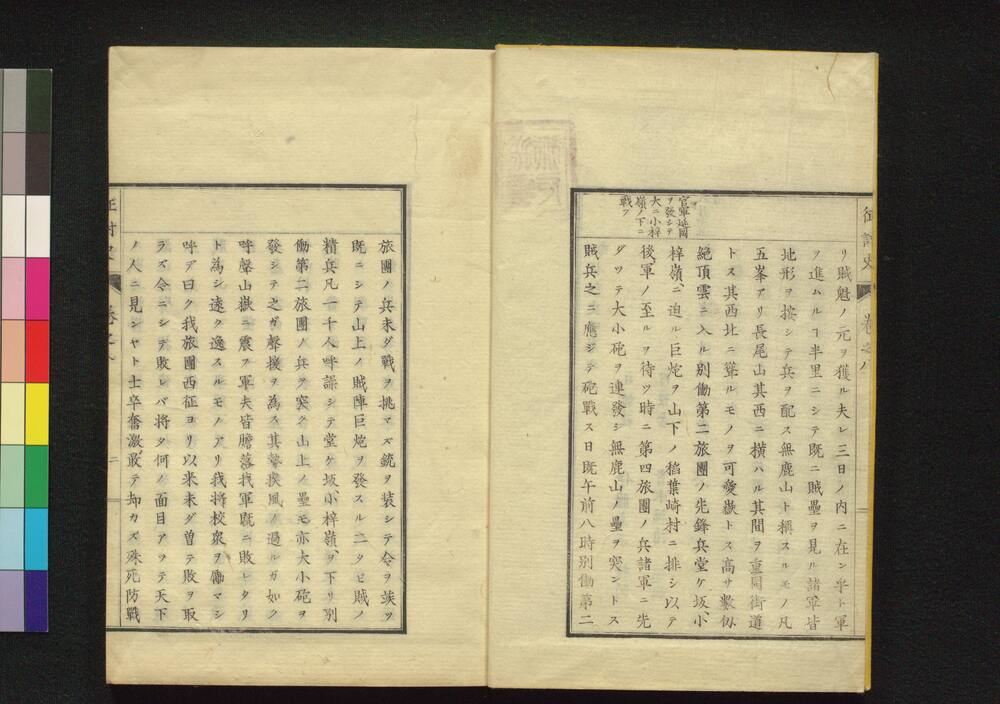 征討史 卷之八
リ賊魁ノ元ヲ獲ル夫レ三日ノ内ニ在ン乎ト軍
ヲ進ムルヿ半里ニシテ既ニ賊壘ヲ見ル諸軍皆
地形ヲ按シテ兵ヲ配ス無鹿山ト稱スルモノ凡
五峯アリ長尾山其西ニ横ハル其間ヲ豊同街道
トス其西北ニ聳ルモノヲ可愛嶽トス高サ數仭
絶頂雲ニ入ル別働第二旅團ノ先鋒兵堂ケ坂、小
梓嶺、ニ迫ル巨炮ヲ山下ノ稻葉崎村ニ排シ以テ
後軍ノ至ルヲ待ツ時ニ第四旅團ノ兵諸軍ニ先
ダツテ大小砲ヲ連發シ無鹿山ノ壘ヲ突ントス
官軍延岡
ヲ發シテ
大ニ小梓
嶺ノ下ニ
戰フ
賊兵之ニ應ジテ砲戰ス日既午前八時別働第二
旅團ノ兵未ダ戰ヲ挑マズ銃ヲ装シテ令ヲ竢ツ
既ニシテ山上ノ賊陣巨炮ヲ發スル二タビ賊ノ
精兵凡一千人呼譟シテ堂ケ坂、小梓嶺、ヲ下リ別
働第二旅團ノ兵ヲ突ク山上ノ壘モ亦大小砲ヲ
發シテ之ガ聲援ヲ為ス其勢疾風ノ過ルガ如ク
呼聲山嶽ニ震ヲ軍夫皆膽落我軍既ニ敗レタリ
ト為シ遠ク逸スルモノアリ我將校衆ヲ勵マシ
呼デ曰ク我旅團西征ヨリ以来未ダ曽テ敗ヲ取
ラズ今ニシテ敗レバ将タ何ノ面目アツテ天下
ノ人ニ見ンヤト士卒奮激、最テ却カズ殊死防戰
征討史 卷之八 二